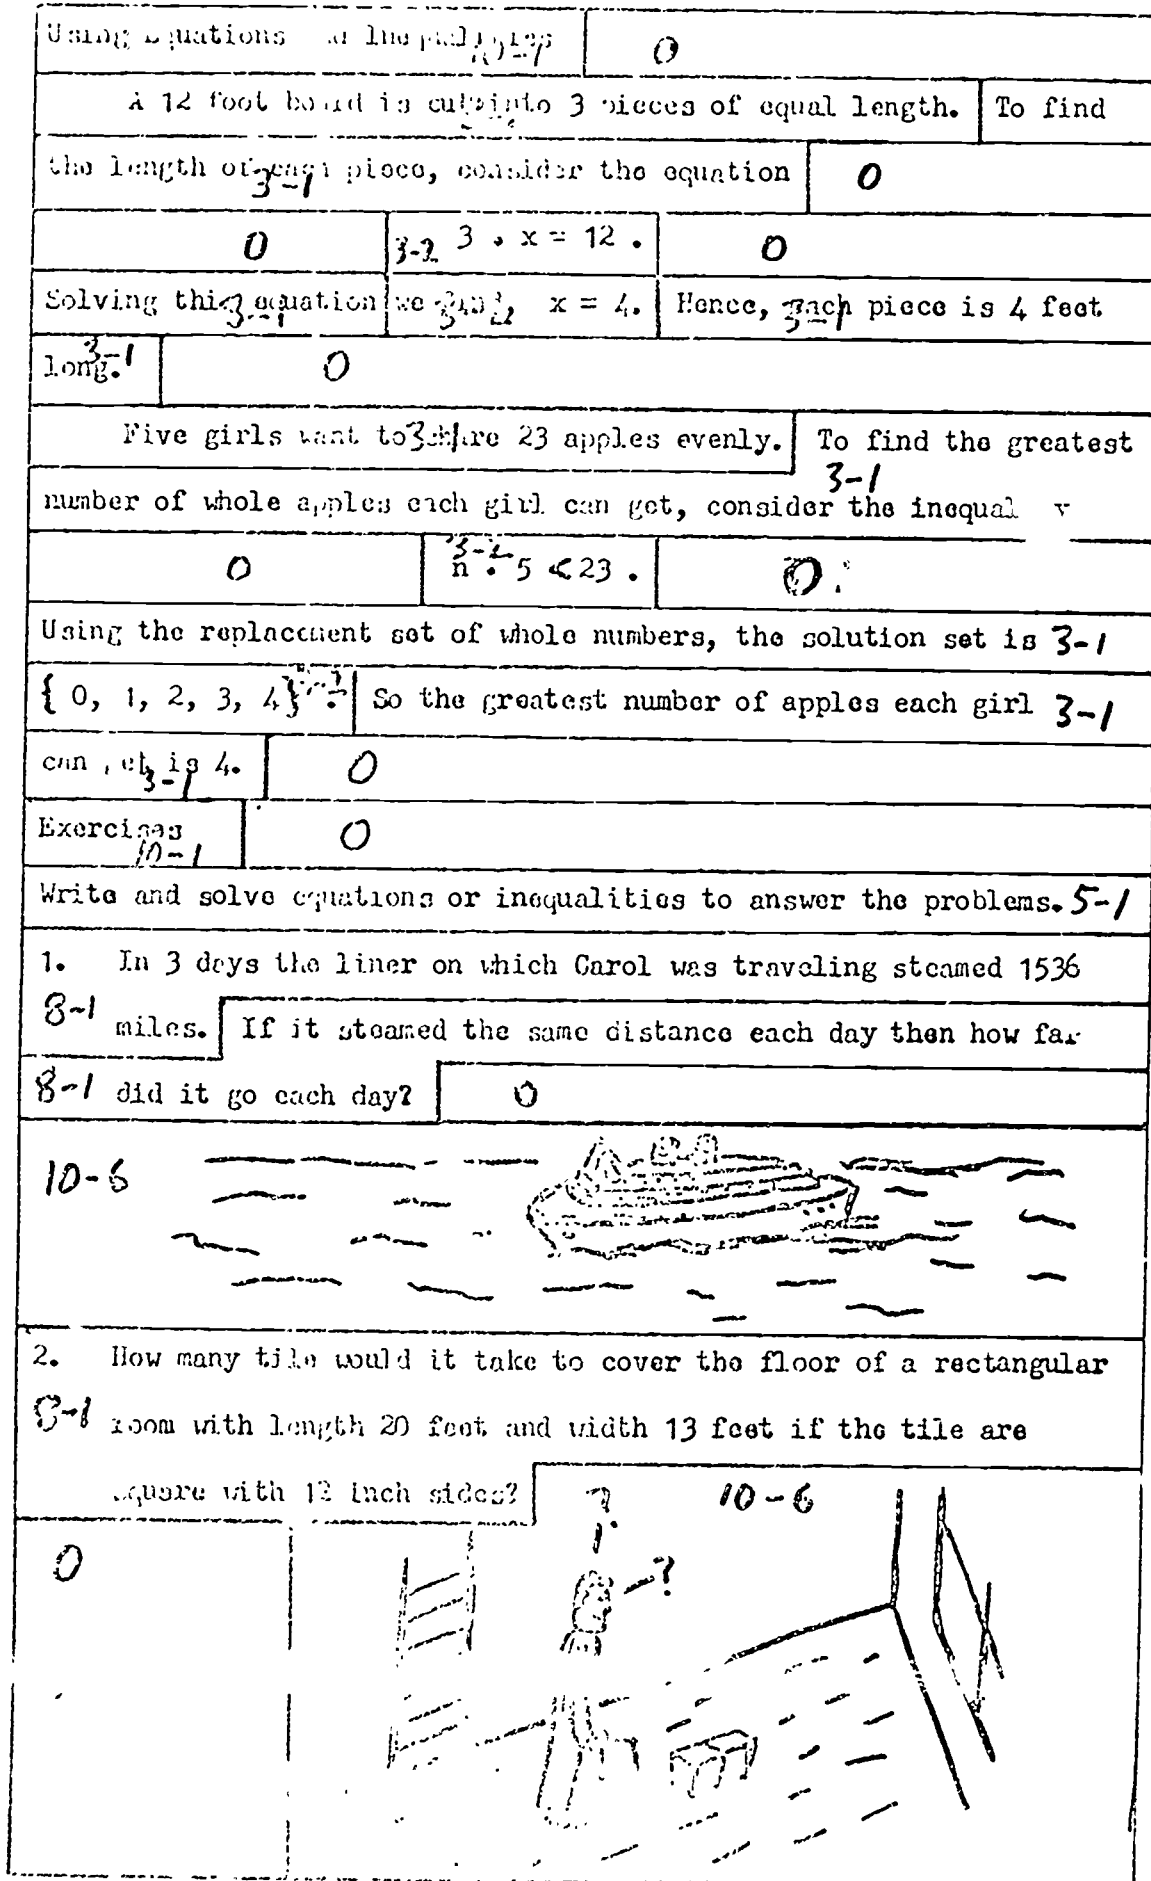 Using Equations Inequalities 0
10-1
A 12 foot board is cut into 3 pieces of equal length. To find
the length of each piece, consider the equation 0
3-1
0 3-2 3 . x = 12 . 0
Solving this equation we find, x = 4. Hence, each piece is 4 feet
3-1 3-1
long. 3-1 0
Five girls want to share 23 apples evenly. To find the greatest
3-1 3-1
number of whole apples each girl can get, consider the
0 3-2 n . 5 < 23 . 0
Using the replacement set of whole numbers, the solution set is 3-1
{ 0, 1, 2, 3, 4} . So the greatest number of apples each girl 3-1
can get is 4. 0
3-1
Exercises 0
10-1
Write and solve equations or inequalities to answer the problems. 5-1
1. In 3 days the liner on which Carol was traveling steamed 1536
8-1 miles. If it steamed the same distance each day then how far
8-1 did it go each day? 0
10-6
2. How many tile would it take to cover the floor of a rectangular
8-1 room with length 20 feet and width 13 feet if the tile are
square with 12 inch sides? 10-6
?
?
0